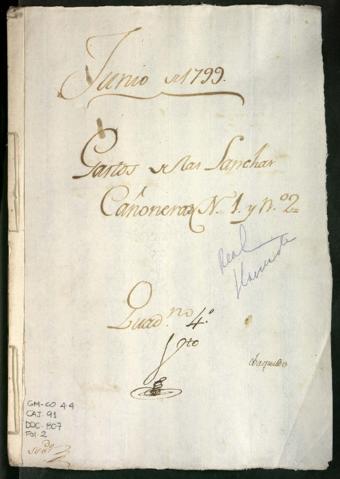 Junio de 1799.
Gastos de las Lanchas
Cañoneras N. 1. y n.º 2
Real
Hacienda
Quad.no 4.º
GM-CO 44
CAJ. 91
DOC. 807
Fol. 2